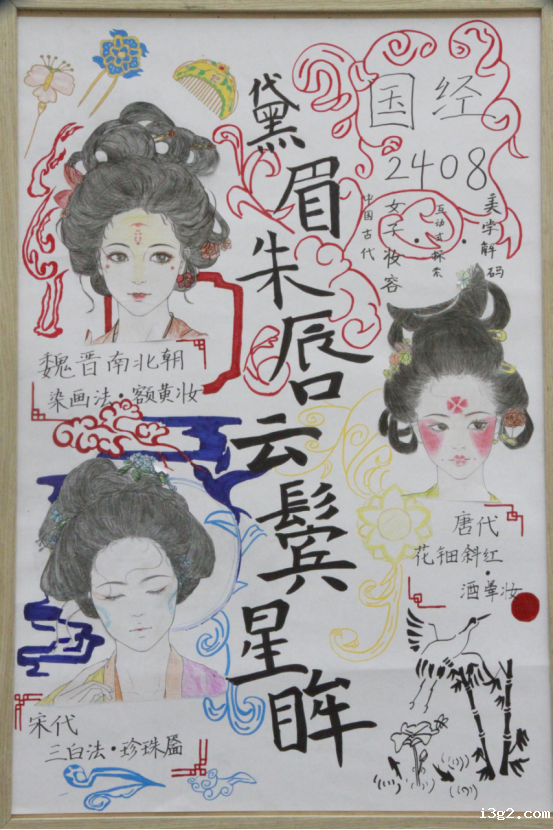 黛眉朱唇云鬓星眸
国经
2408
中国古代
女子妆容
·互动式探索
·美学解码
魏晋南北朝
染画法·额黄妆
唐代
花钿斜红
·酒晕妆
宋代
三白法·珍珠
i3g2.com